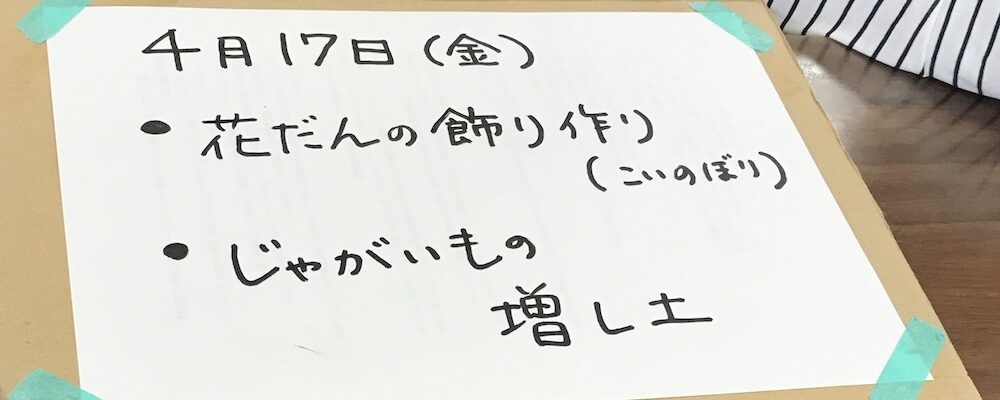 4月17日(金)
• 花だんの飾り作り
(こいのぼり)
• じゃがいもの
増し土